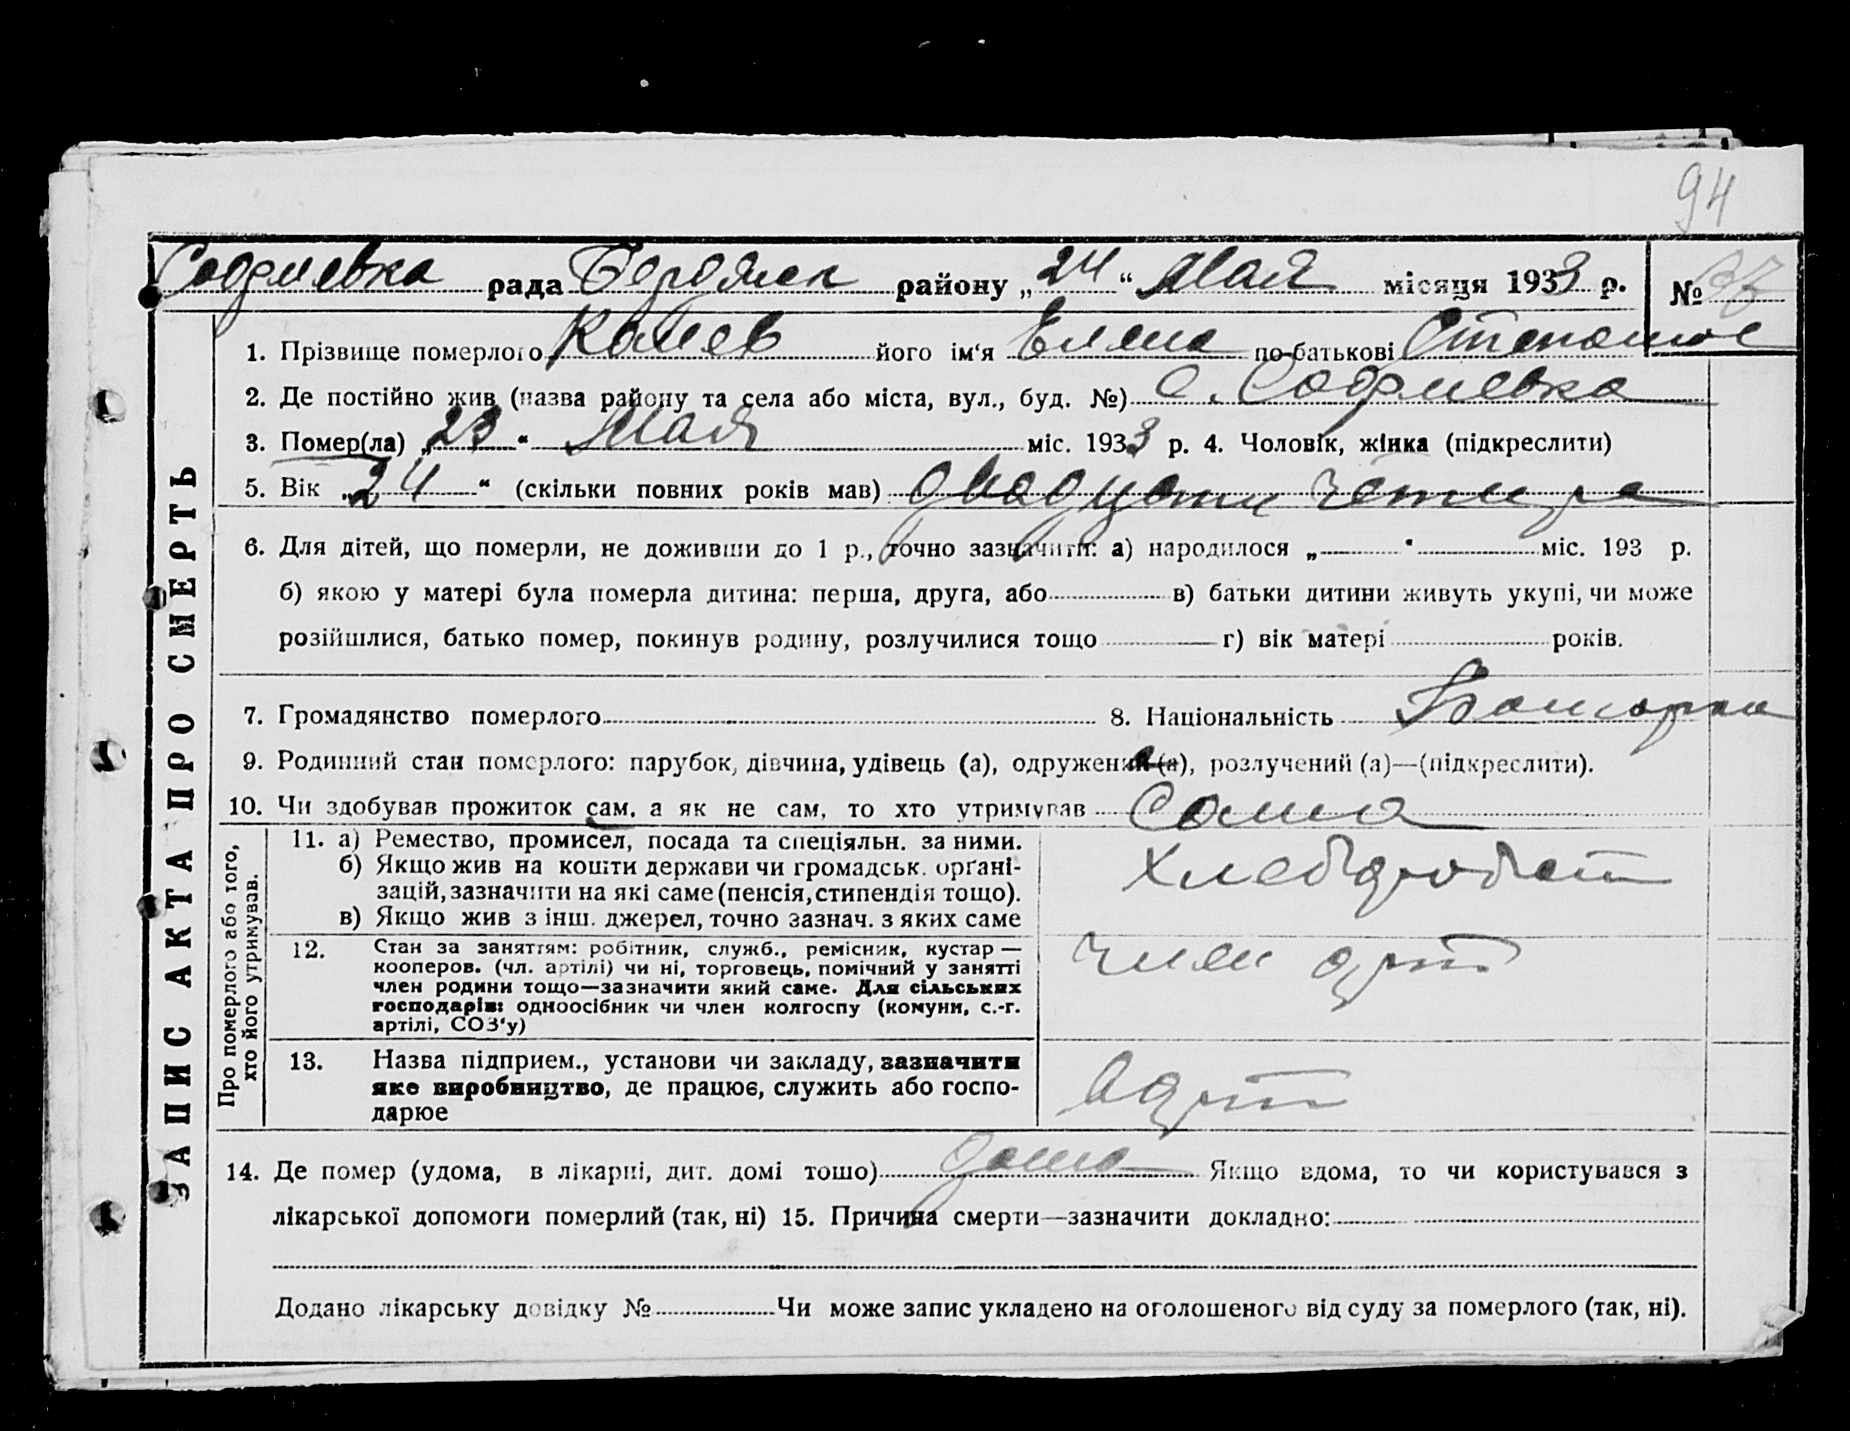 94
Софиевка рада Бердянск району „24“ Мая місяця 1933 р. № 37
1. Прізвище померлого Колев його ім‘я Елена по-батькові
2. Де постійно жив (назва району та села або міста, вул., буд. №) с. Софиевка
3. Помер(ла) „23“ Мая міс. 1933 р. 4. Чоловік, жінка (підкреслити)
5. Вік „24“ (скільки повних років мав) двадцать четире
6. Для дітей, що померли, не доживши до 1 р., точно зазначити: а) народилося „ “ міс. 193 р.
б) якою у матері була померла дитина: перша, друга, або в) батьки дитини живуть укупі, чи може
розійшлися, батько помер, покинув родину, розлучилися тощо г) вік матері років.
7. Громадянство померлого 8. Національність Болгарка
9. Родинний стан померлого: парубок, дівчина, удівець (а), одружений (а), розлучений (а)—(підкреслити).
10. Чи здобував прожиток сам, а як не сам, то хто утримував Сама
ЗАПИС АКТА ПРО СМЕРТЬ
Про померлого або того, хто його утримував.
11. а) Ремество, промисел, посада та спеціяльн. за ними.
б) Якщо жив на кошти держави чи громадськ. органі-
зацій, зазначити на які саме (пенсія, стипендія тощо).
в) Якщо жив з інш. джерел, точно зазнач. з яких саме
Хлебороб
12. Стан за заняттям: робітник, служб., ремісник, кустар —
кооперов. (чл. артілі) чи ні, торговець, помічний у занятті
член родини тощо—зазначити який саме. Для сільських
господарів: одноосібник чи член колгоспу (комуни, с.-г.
артілі, СОЗ‘у)
член арт
13. Назва підприєм., установи чи закладу, зазначити
яке виробництво, де працює, служить або госпо-
дарює
в арт
14. Де помер (удома, в лікарні, дит. домі тощо) дома Якщо вдома, то чи користувався з
лікарської допомоги померлий (так, ні) 15. Причина смерти—зазначити докладно:
Додано лікарську довідку № Чи може запис укладено на оголошеного від суду за померлого (так, ні).